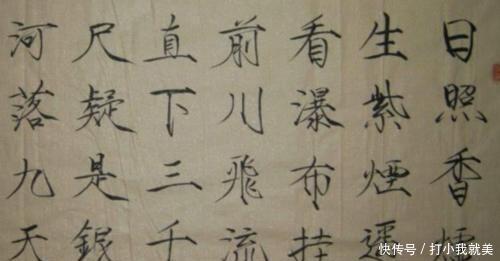 日照香爐
生紫煙遥
看瀑布挂
前川飛流
直下三千
尺疑是銀
河落九天
快传号／打小我就美